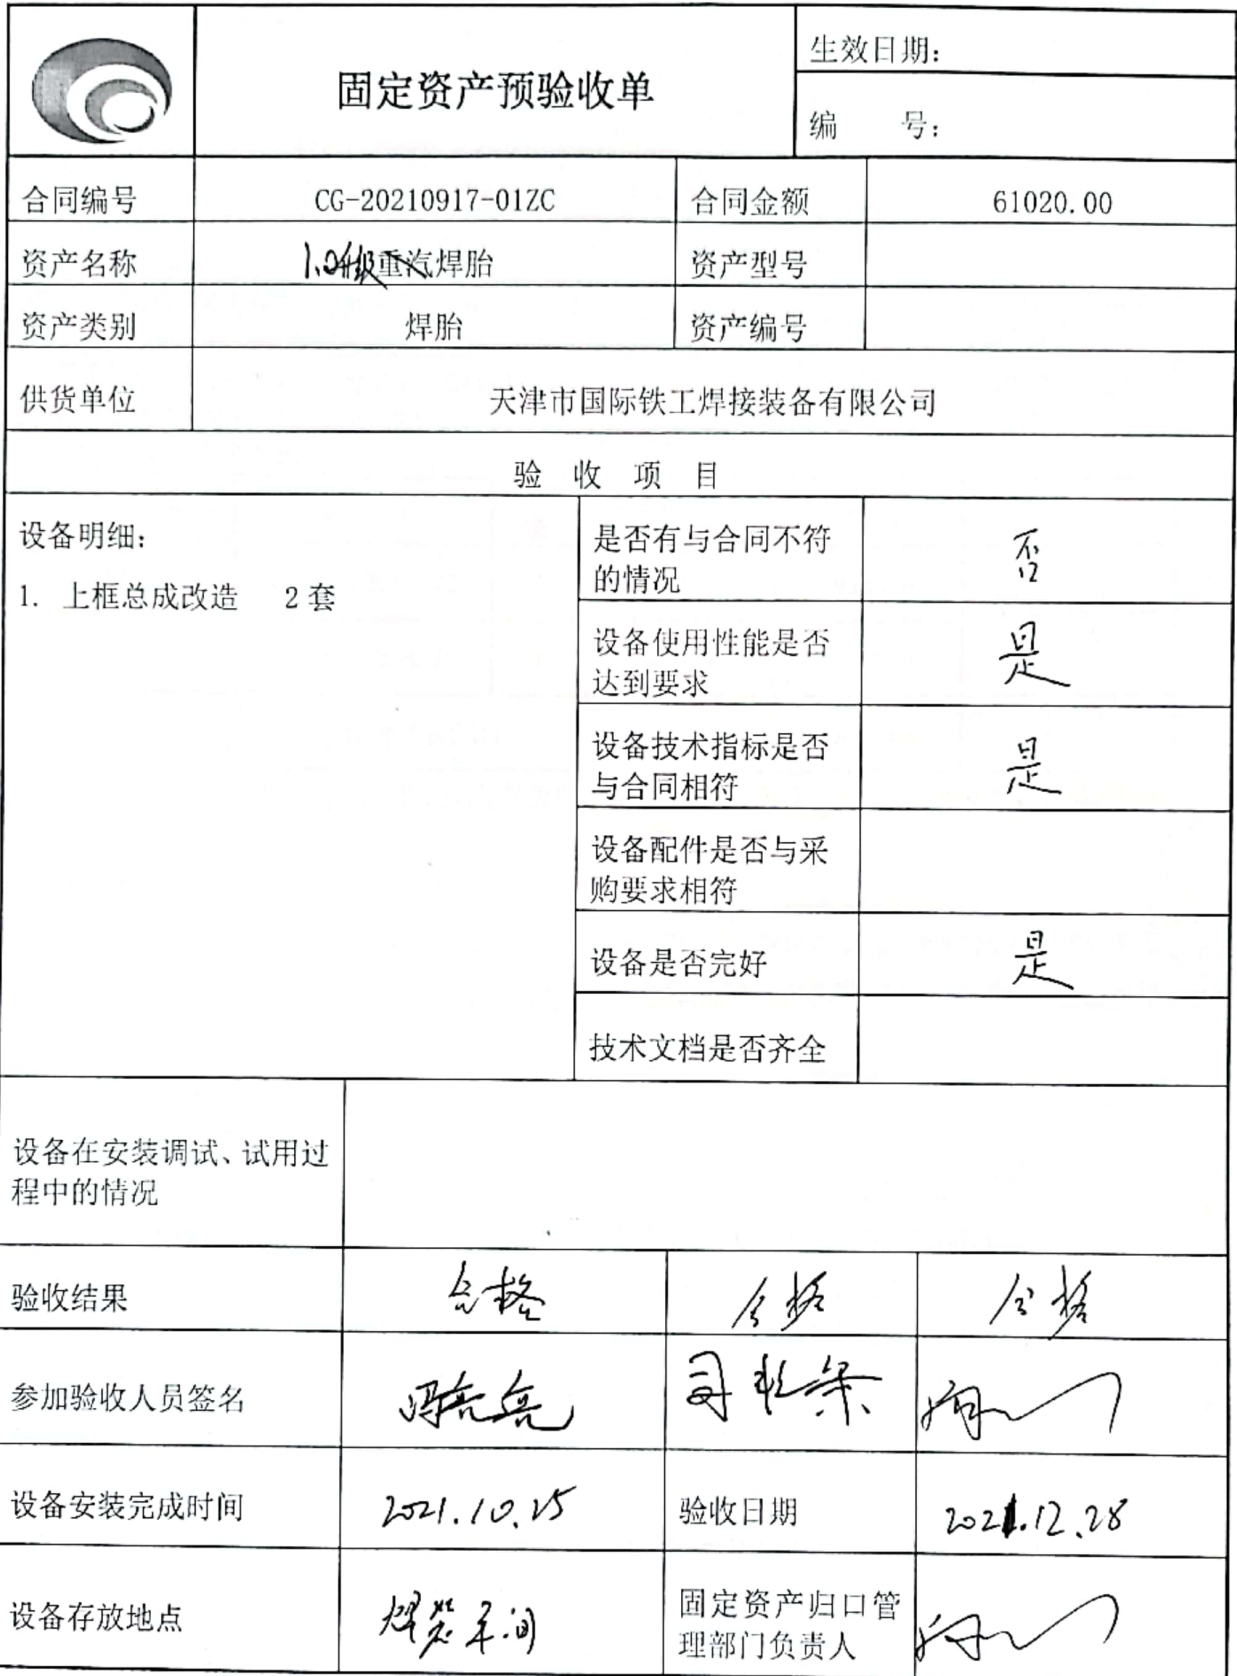 固定资产预验收单
生效日期:
编 号:
合同编号 CG-20210917-01ZC 合同金额 61020.00
资产名称 1.0升级重汽焊胎 资产型号
资产类别 焊胎 资产编号
供货单位 天津市国际铁工焊接装备有限公司
验 收 项 目
设备明细:
1. 上框总成改造 2套
是否有与合同不符
的情况
否
设备使用性能是否
达到要求
是
设备技术指标是否
与合同相符
是
设备配件是否与采
购要求相符
设备是否完好 是
技术文档是否齐全
设备在安装调试、试用过
程中的情况
验收结果 合格 合格 合格
参加验收人员签名
设备安装完成时间 2021.10.25 验收日期 2021.12.28
设备存放地点 焊装车间
固定资产归口管
理部门负责人